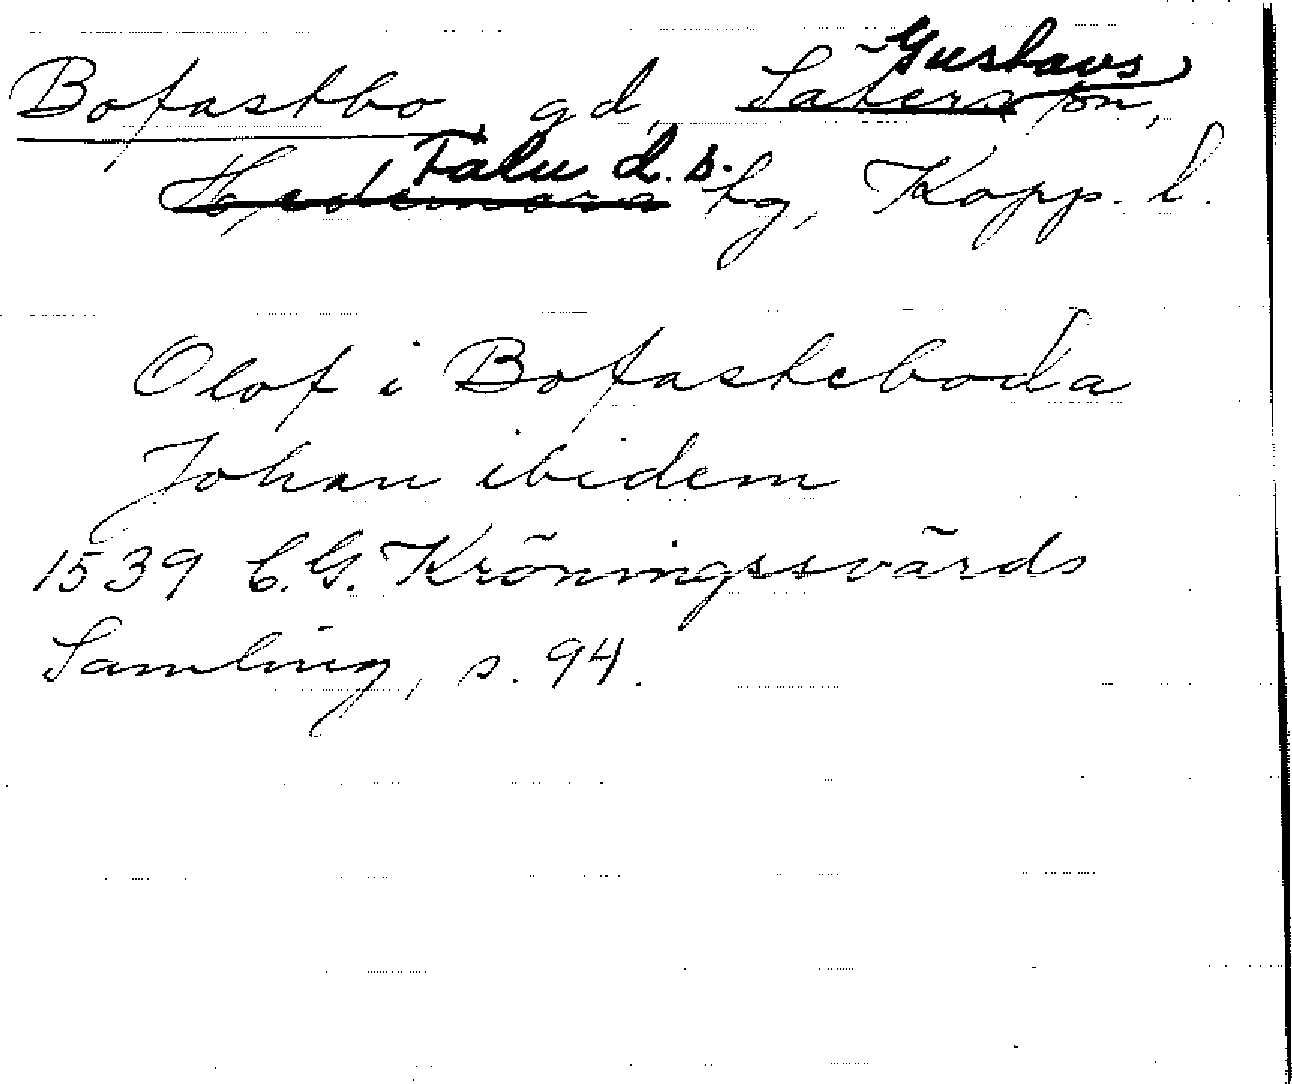 Gustavs
Bofastbo gd, Säters sn,
Falu d. s.
Hedemora hg, Kopp. l.
Olof i Bofasteboda
Johan ibidem
1539 C.G. Kröningssvärds
Samling, s. 94.